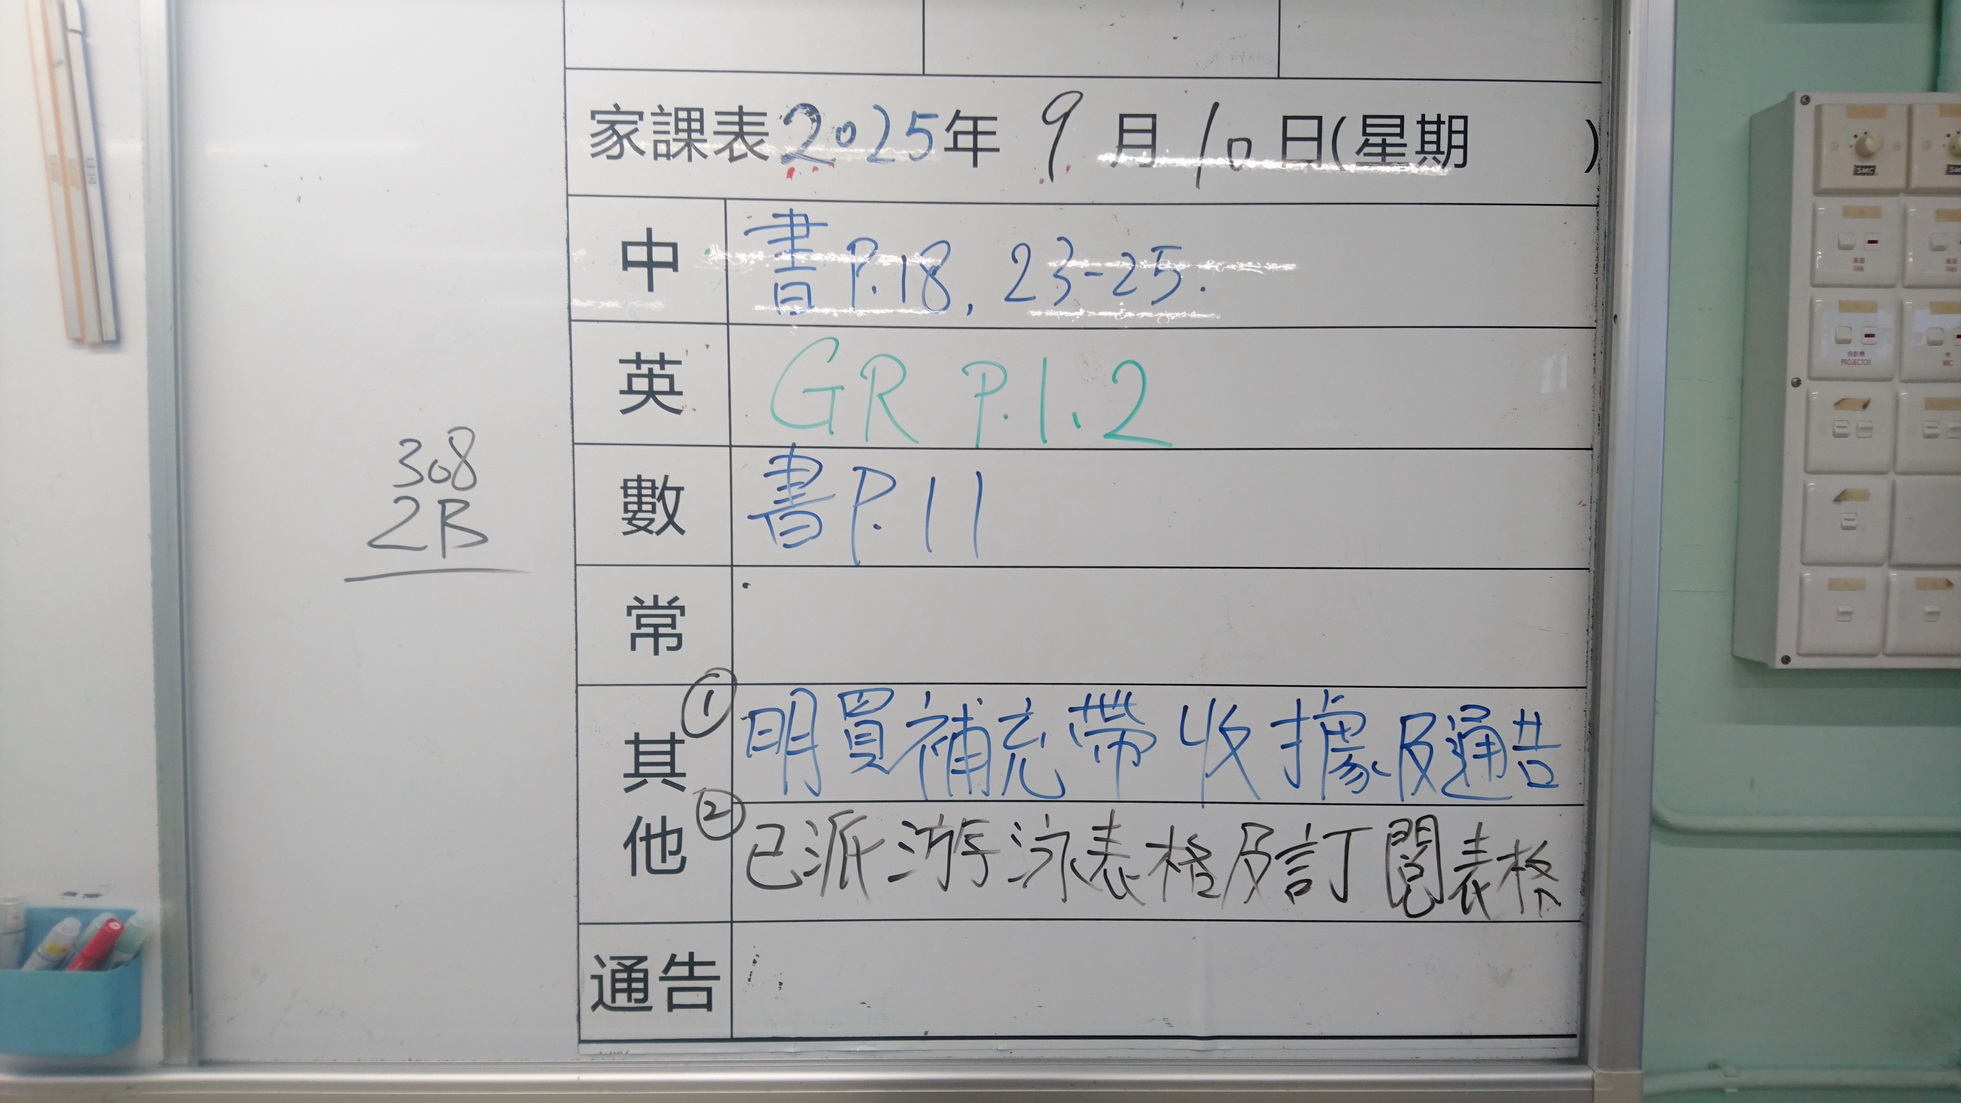 家課表2025年 9月10日(星期 )
中 書P.18, 23-25.
英 GR P.1、2
數 書P.11
常
其他
① 明買補充帶收據及通告
② 已派游泳表格及訂閱表格
通告
308
2B
SMC